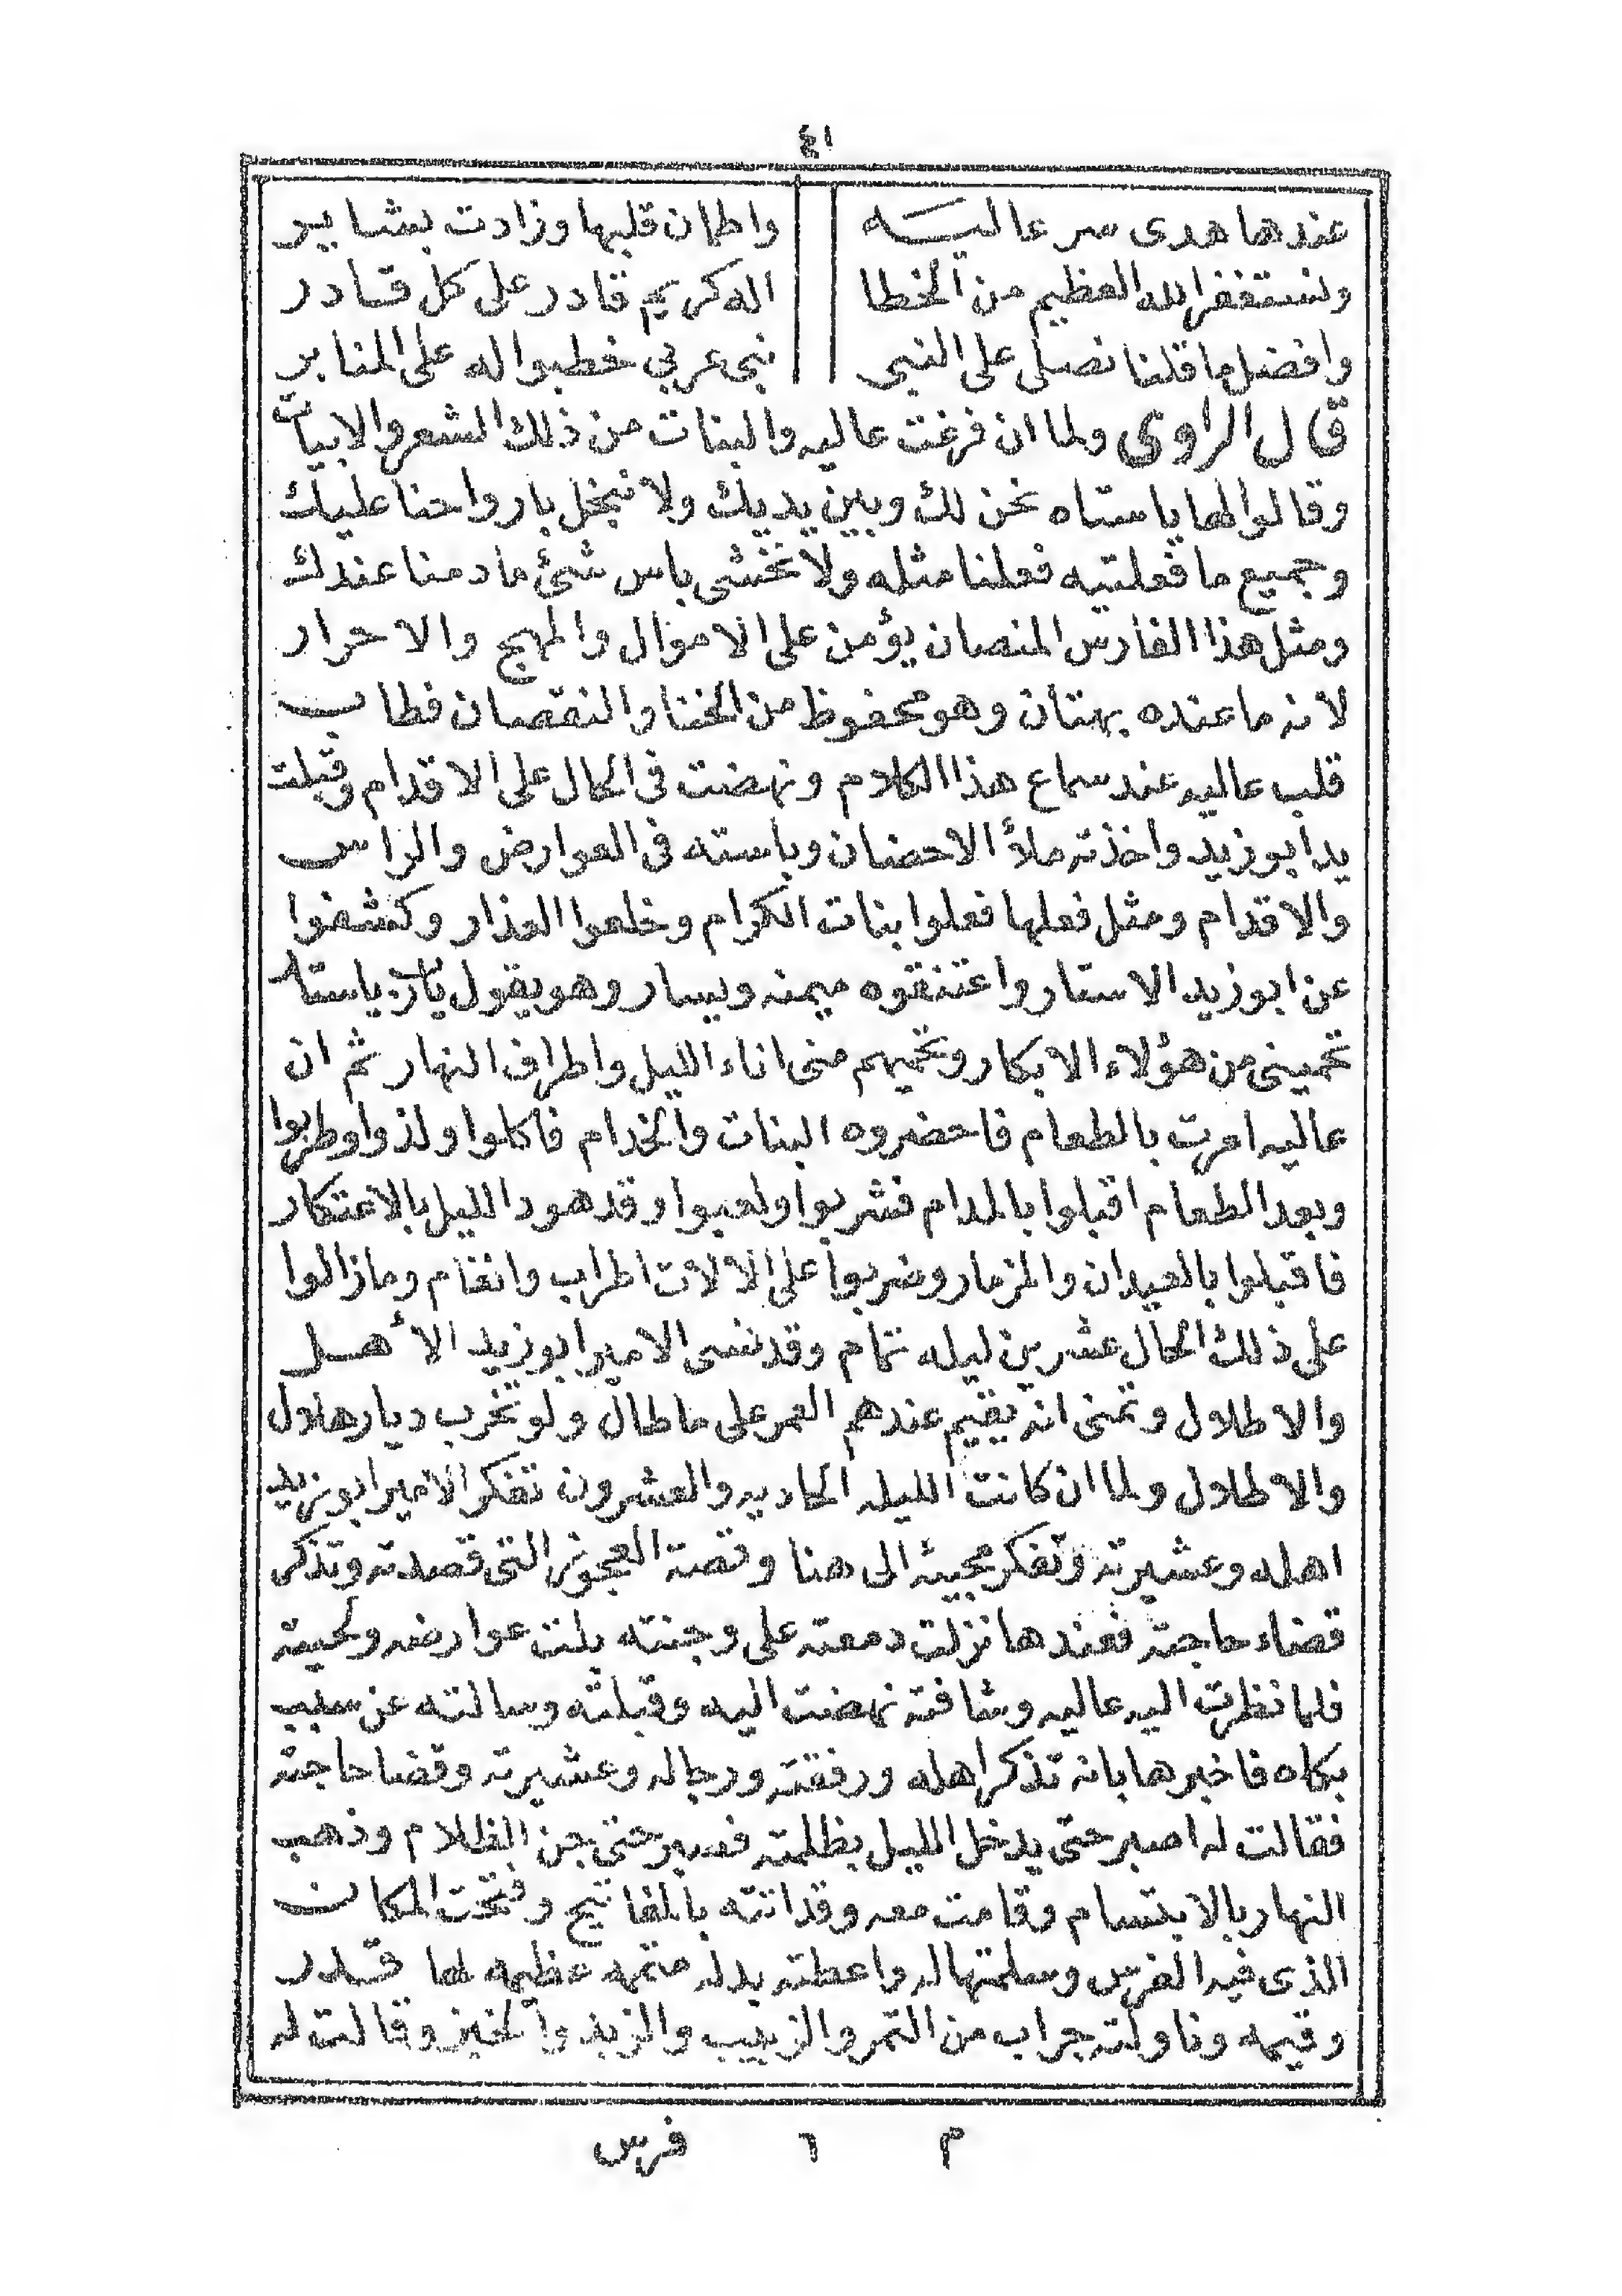 ٤١
عندها هدى سر عاليه واطمان قلبها وزادت بشاير
ونستغفر الله العظيم من الخطا اله كريم قادر على كل قادر
وافضل ما قلنا نصلى على النبى نبى عربي خطبوا له على المنابر
قال الراوى ولما ان فرغت عاليه والبنات من ذلك الشعر والابيات
وقالوا لها ياستاه نحن لك وبين يديك ولا نبخل بارواحنا عليك
وجميع ما فعلتيه فعلنا مثله ولا تخشى باس شئ ما دمنا عندك
ومثل هذا الفارس المنصان يؤمن على الاموال والمهج والاحرار
لانه ما عنده بهتان وهو محفوظ من الخنا والنقصان فطاب
قلب عاليه عند سماع هذا الكلام ونهضت فى الحال على الاقدام وقبلت
يد ابو زيد واخذته ملأ الاحضان وباسته فى العوارض والراس
والاقدام ومثل فعلها فعلوا بنات الكرام وخلعوا العذار وكشفوا
عن ابوزيد الاستار واعتنقوه ميمنه ويسار وهو يقول ياستاه
تحمينى من هؤلاء الابكار وتحميهم منى اناء الليل واطراف النهار ثم ان
عاليه امرت بالطعام فاحضروه البنات والخدام فاكلوا ولذوا وطربوا
وبعد الطعام اقبلوا بالمدام فشربوا ولعبوا وقد هود الليل بالاعتكار
فاقبلوا بالعيدان والمزمار وضربوا على الالات اطراب وانغام ومازالوا
على ذلك الحال عشرين ليله تمام وقد نسى الامير ابوزيد الأهل
والاطلال وتمنى انه يقيم عندهم العمر على ما طال ولو تخرب ديار هلال
والاطلال ولما ان كانت الليله الحاديه والعشرون تفكر الامير ابوزيد
اهله وعشيرته وتفكر مجيئه الى هنا وقصة العجوز التى قصدته وتذكر
قضاء حاجته فعندها نزلت دمعته على وجنته بلت عوارضه ولحيته
فلما نظرت اليه عاليه وشافته نهضت اليه وقبلته وسالته عن سبب
بكاه فاخبرها بانه تذكر اهله ورفقته ورجاله وعشيرته وقضا حاجته
فقالت له اصبر حتى يدخل الليل بظلمته فصبر حتى جن الظلام وذهب
النهار بالابتسام وقامت معه وقد اتته بالمفاتيح وفتحت المكان
الذى فيه الفرس وسلمتها له واعطته بدله متمه عظيمه لها قدر
وقيمه وناولته جراب من التمر والزبيب والزبد والخبز وقالت له
م ٦ فرس